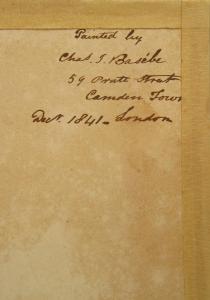 Painted by
Chas. J. Basébe
59 Pratt Street
Camden Town
Decr. 1841 - London